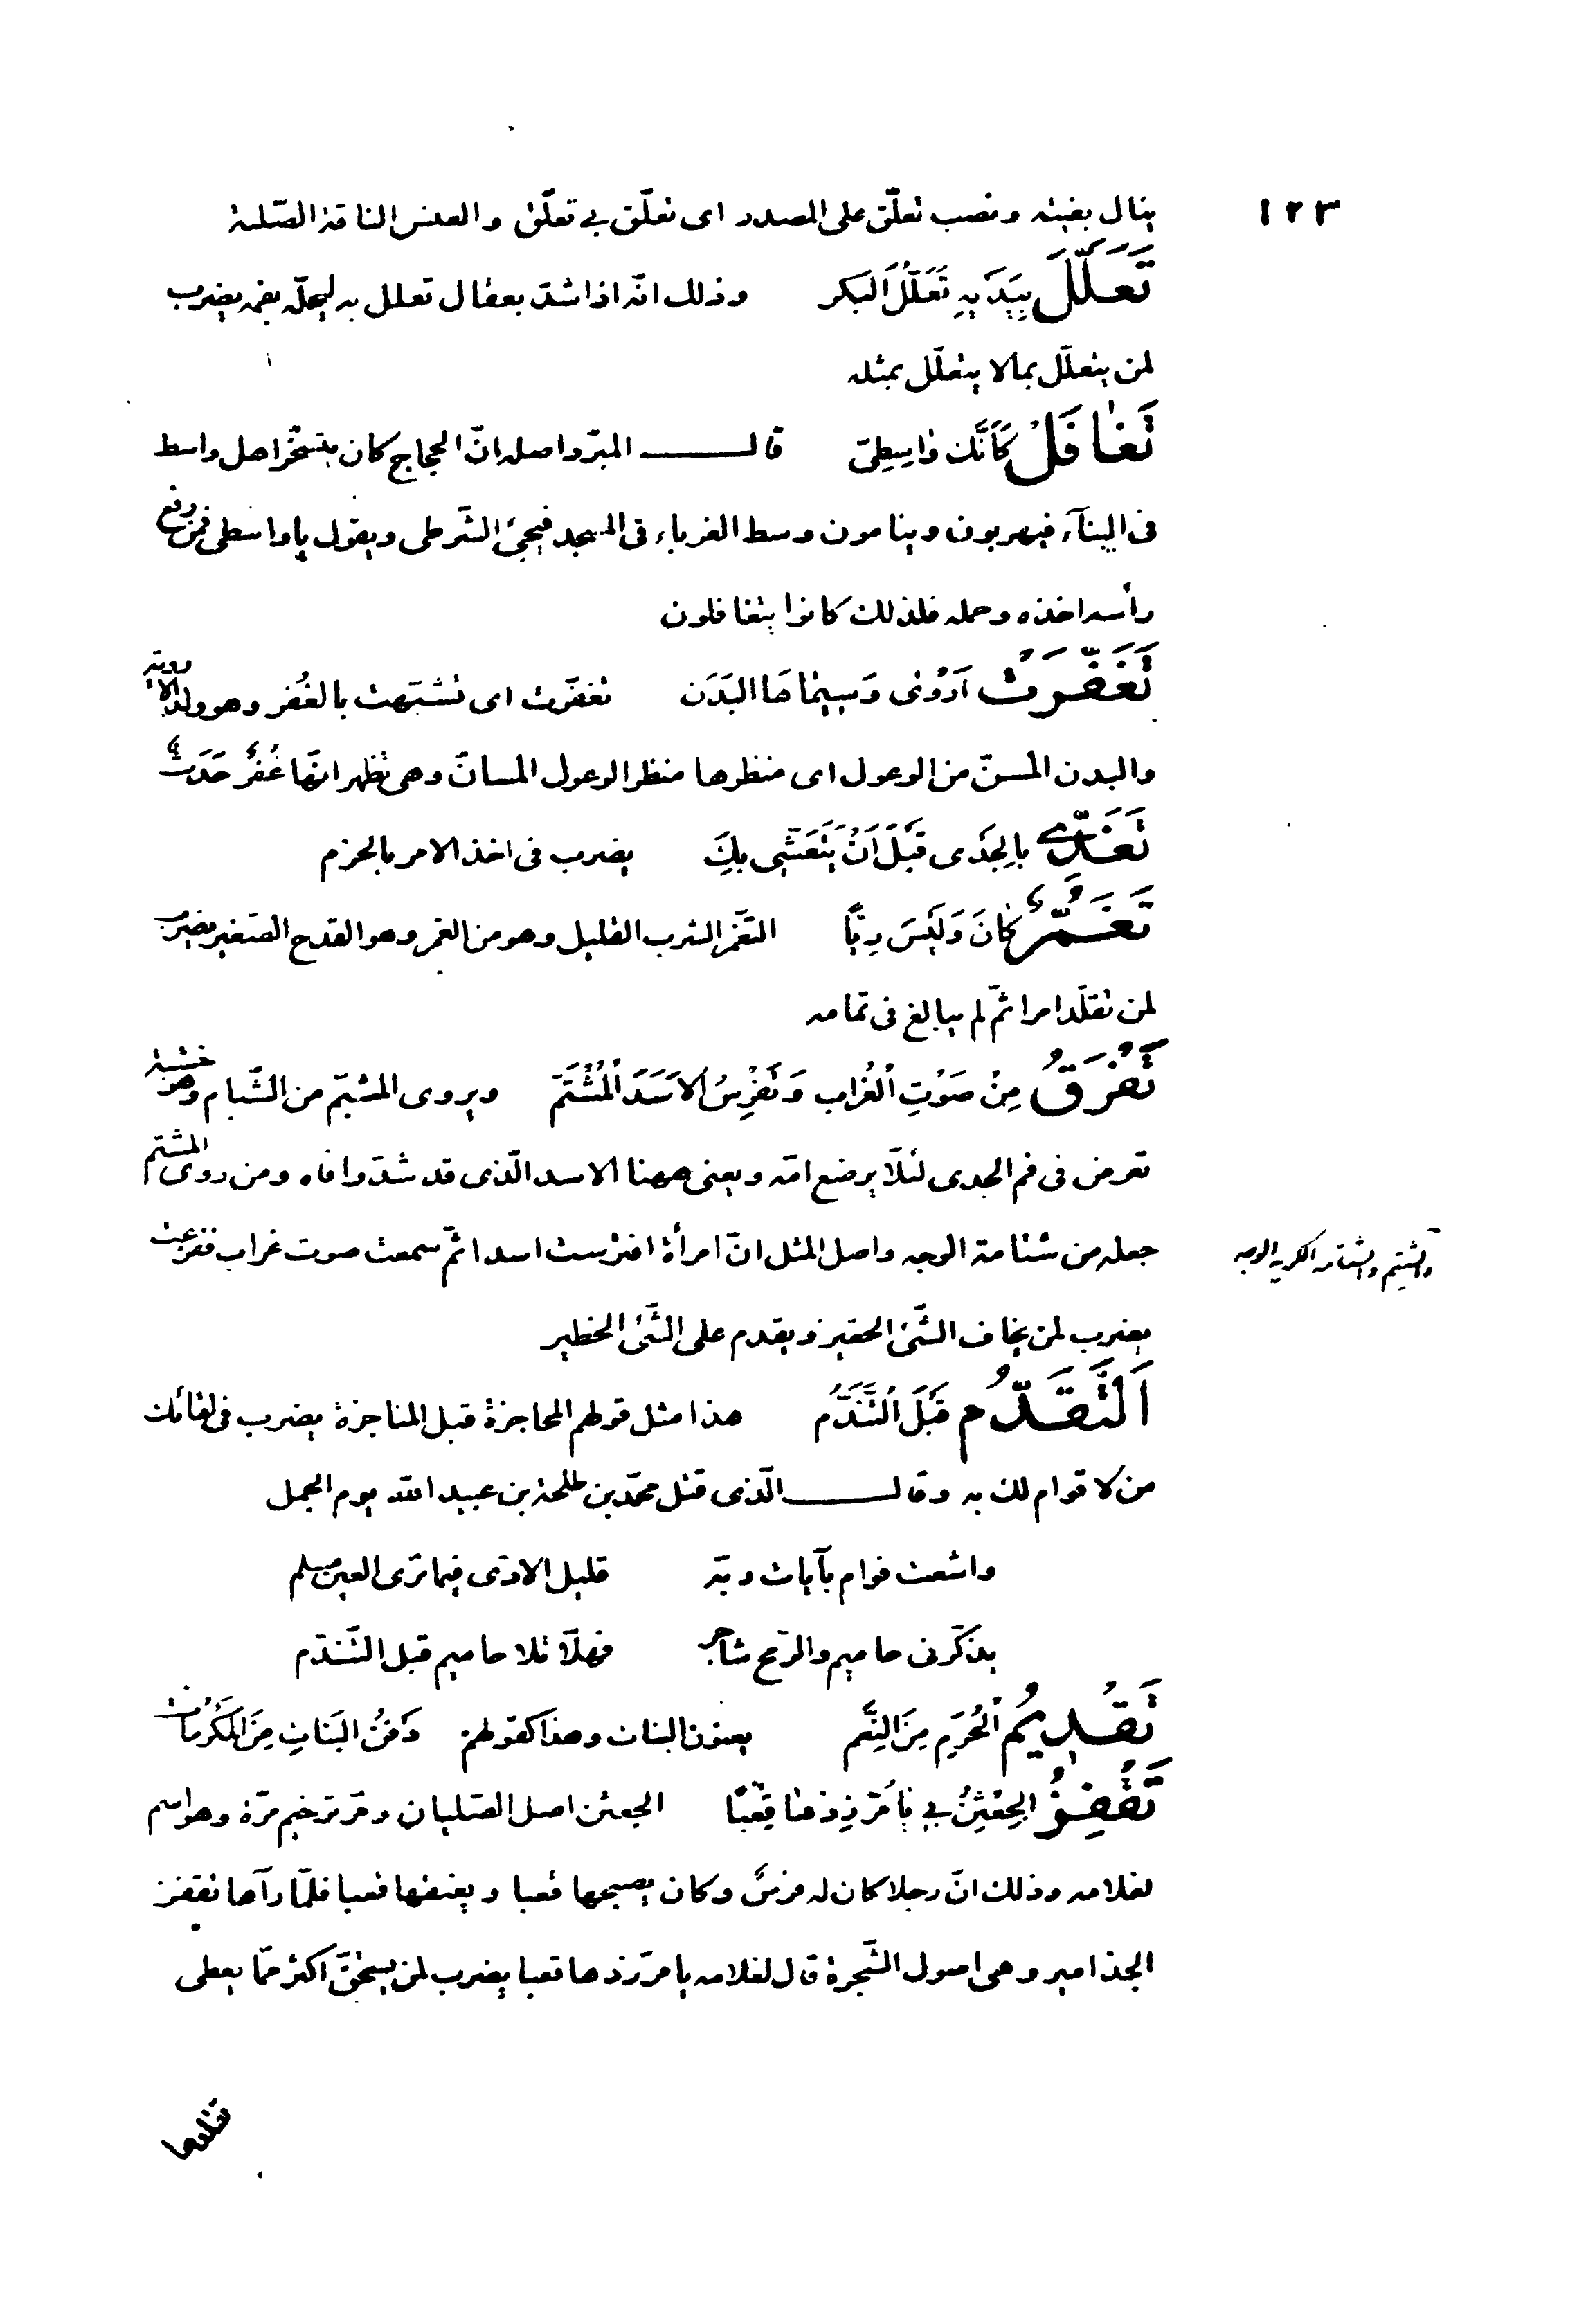 ١٢٣
ينال بغيته ونصب تعلّق على المصدر اى تعلّق بى تعلّق والعنس الناقة الصّلبة
تَعَلَّلَ بِيَدَيْهِ تَعَلُّلَ الْبَكر وذلك انّه اذا شدّ بعقال تعلل به ليحلّه بفمه يضرب
لمن يتعلّل بما لا يتعلّل بمثله
تَغَافَلْ كَأَنَّكَ وَاسِطِىّ قال المبرّد اصله انّ الحجاج كان يتسخّر اهل واسط
فى البنآء فيهربون وينامون وسط الغرباء فى المسجد فيجئ الشّرطى ويقول يا واسطى فمن رفع
رأسه اخذه وحمله فلذلك كانوا يتغافلون
تَغَفَّرَتْ اَرْوٰى وَسِيمَاهَا الْبَدَن تغفّرت اى تشبّهت بالغُفر وهو ولد الاروية
والبدن المسنّ من الوعول اى منظرها منظر الوعول المسانّ وهى تظهر انّها غُفرٌ حَدَثٌ
تَغَدَّ بِالْجَدْىِ قَبْلَ اَنْ يَتَعَشّٰى بِكَ يضرب فى اخذ الامر بالحزم
تَغَمُّرٌ كَانَ وَلَيْسَ رِيًّا التغمّر الشرب القليل وهو من الغمر وهو القدح الصّغير يضرب
لمن تقلّد امرا ثمّ لم يبالغ فى تمامه
تَفْرَقُ مِنْ صَوْتِ الْغُرَابِ وَتَفْرِسُ الْاَسَدَ الْمُشَتَّمَ ويروى المشبّم من الشّبام وهو خشبة
تعرض فى فم الجدى لئلّا يرضع امّه ويعنى ههنا الاسد الّذى قد شدّوا فاه ومن روى المشتّم
جعله من شتامة الوجه واصل المثل انّ امرأة افترست اسدا ثمّ سمعت صوت غراب ففزعت
والشتيم والشتامه الكريه الوجه
يضرب لمن يخاف الشّئ الحقير ويقدم على الشّئ الخطير
اَلتَّقَدُّمُ قَبْلَ التَّنَدُّم هذا مثل قولهم المحاجزة قبل المناجزة يضرب فى لقائك
من لا قوام لك به وقال الّذى قتل محمّد بن طلحة بن عبيد الله يوم الجمل
واشعث قوام بآيات ربّه قليل الاذى فيما ترى العين مسلم
يذكّرنى حاميم والرّمح شاجر فهلّا تلا حاميم قبل التّندّم
تَقْدِيمُ الْحُرَمِ مِنَ النِّعَم يعنون البنات وهذا كقولهم دَفْنُ الْبَنَاتِ مِنَ الْمَكْرُمَات
تَقْفِزُ الْجِعْثِنُ بِى يَا مُرَّ زِدْهَا قَعْبًا الجعثن اصل الصّليان ومرّ ترخيم مرّة وهو اسم
لغلامه وذلك انّ رجلا كان له فرسٌ وكان يصبحها قعبا ويغبقها قعبا فلمّا رآها تقفز
الجذامير وهى اصول الشّجرة قال لغلامه يا مرّ زدها قعبا يضرب لمن يستحقّ اكثر ممّا يعطى